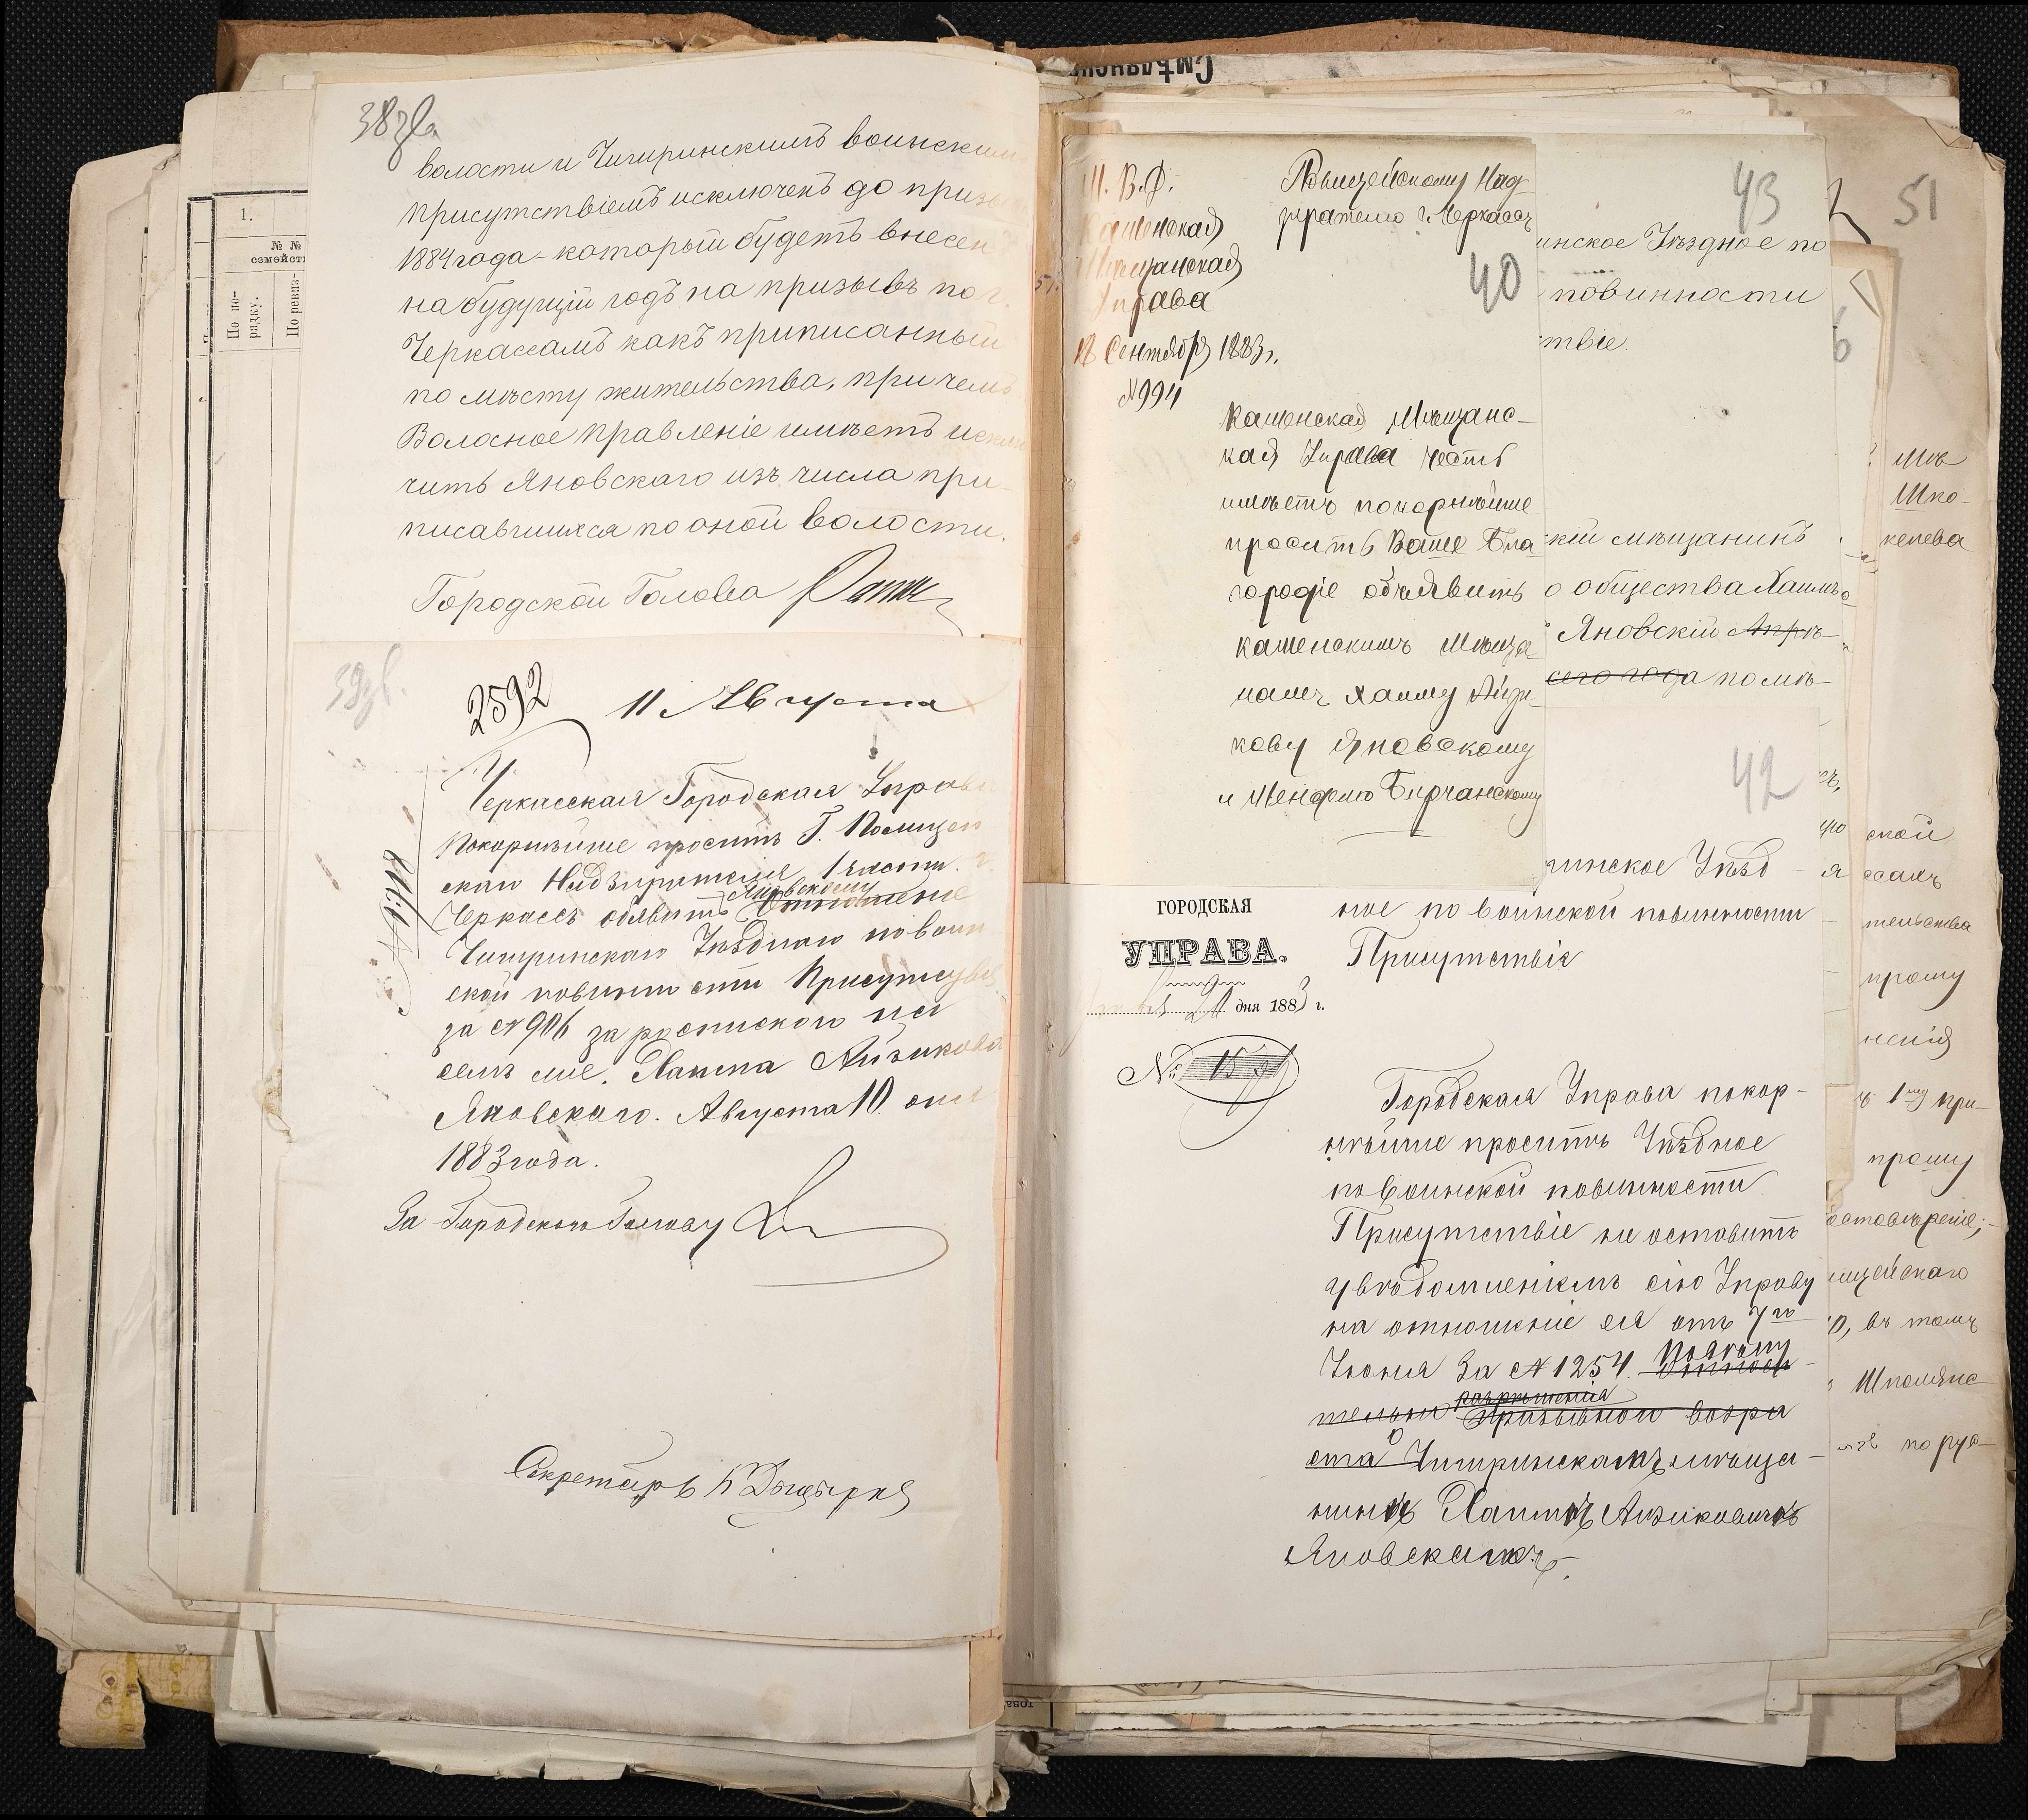 38 зв.
волости и Чигиринскимъ воинским
присутствіемъ исключенъ до призы
1884 года - который будетъ внесен
на будущій годъ на призывъ по г.
Черкассамъ какъ приписанный
по мѣсту жительства, при чемъ
Волосное Правленіе имѣетъ исклю
чить Яновскаго изъ числа при-
писавшихся по оной волости.
Городской Голова
39 зв.
2592
11 Августа
Черкасская Городская Управа
Покорнѣйше проситъ Г. Полицей
скаго Надзирателя 1 части г.
Яновскому
Черкассъ объявить Отношеніе
Чигиринскаго Уѣзднаго по воин
ской повинности Присутствія
за № 906 за роспискою на
семъ же, Хаима Айзикова
Яновскаго. Августа 10 дня
1883 года.
За Городскаго Голову
Секретарь
1.
№ №
семейст
По по-
рядку.
По ревиз-
Смѣлянск
М. В. Д.
Каменская
Мѣщанская
Управа
12 Сентября 1883 г.
№ 994
Полицейскому Над
зирателю г. Черкассъ
40
Каменская Мѣщанс-
кая Управа честь
имѣетъ покорнѣйше
проситъ Ваше Бла
городіе объявить
каменскимъ Мѣща
намъ Хаиму Айзи
кову Яновскому
и Менделю Бирчанскому
43
инское Уѣздное по
повинности
твіе.
кій мѣщанинъ
о общества Хаимъ
Яновскій Апрѣ-
сего года по мѣ-
42
ринское Уѣзд-
ное по воинской повинности
Присутствіе
ГОРОДСКАЯ
УПРАВА.
дня 1883 г.
№
Городская Управа покор-
нѣйше проситъ Уѣздное
по Воинской повинности
Присутствіе не оставить
увѣдомленіемъ сію Управу
на отношеніе ея отъ 7го
Іюня За № 1254.
разрѣшенія
тельно призывного возра
ста Чигиринскамъ мѣща-
нинѣ Хаимѣ Айзиковичѣ
Яновскамъ.
51
6
Мѣ
Шпо-
келева
ской
ссамъ
тельства
прошу
нсія
1му при-
прошу
ицейскаго
о, въ томъ
Шполянс